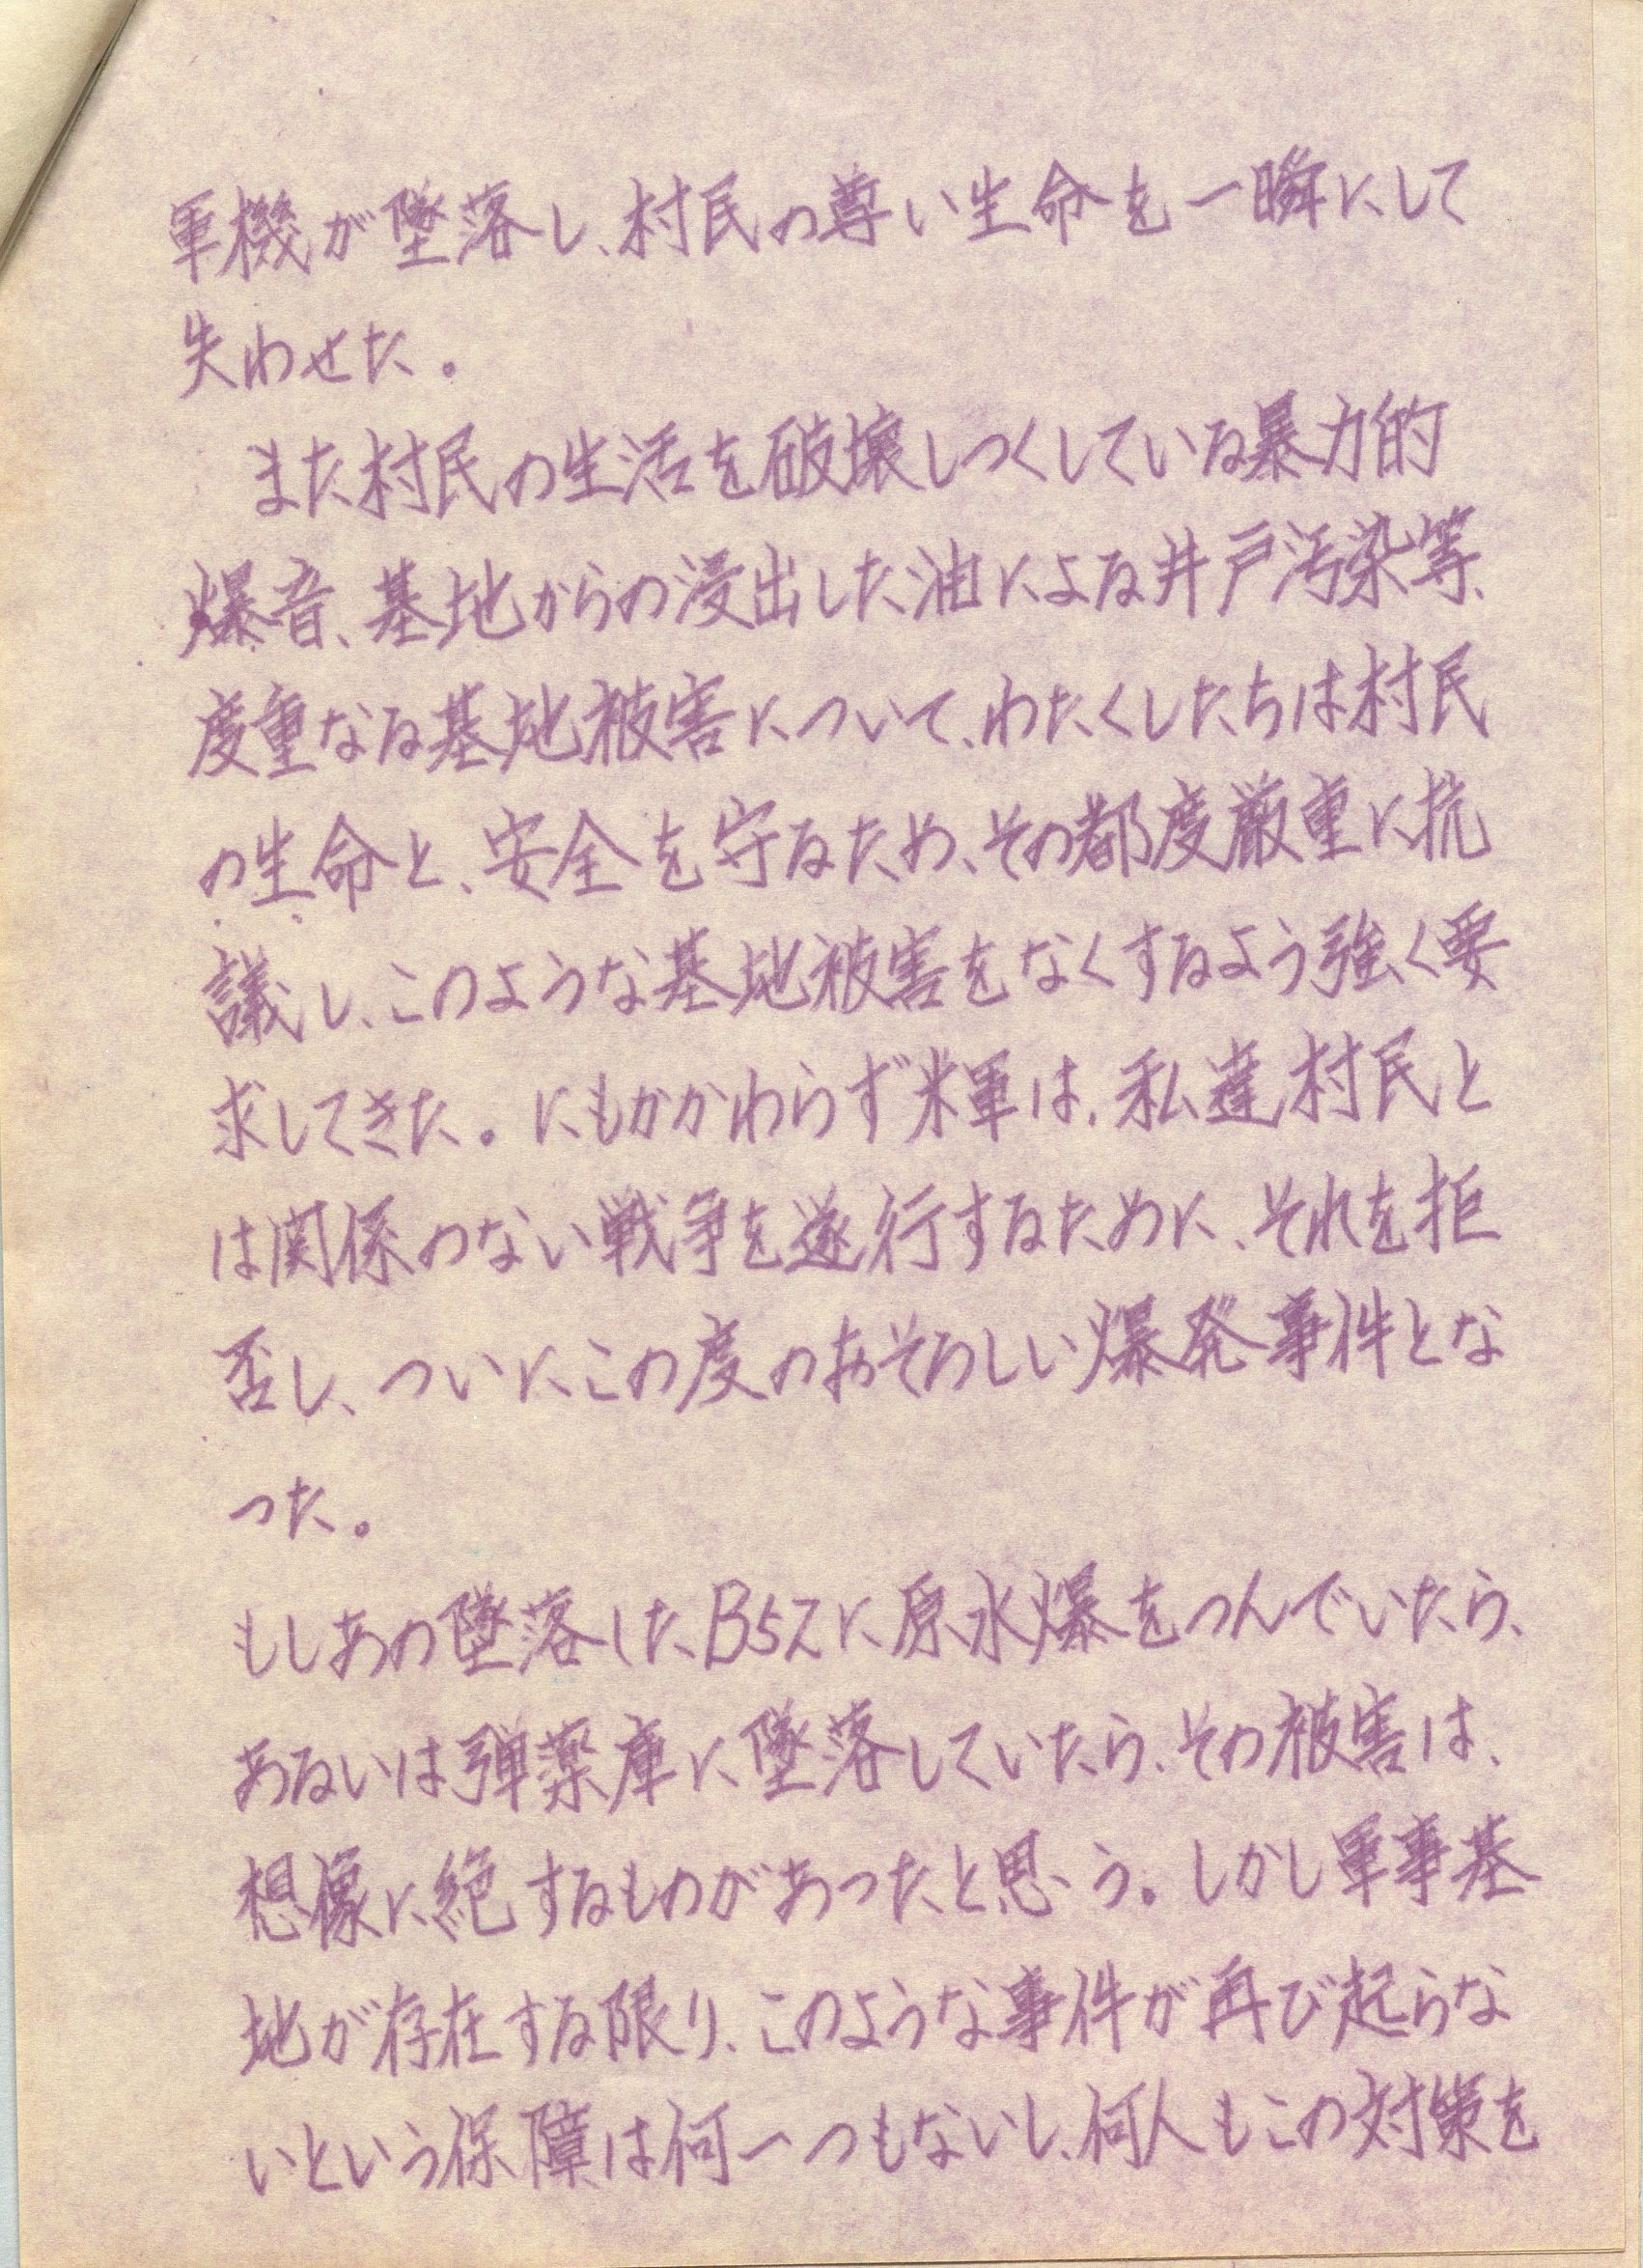 軍機が墜落し、村民の尊い生命を一瞬にして
失わせた。
また村民の生活を破壊しつくしている暴力的
爆音、基地からの浸出した油による井戸汚染等、
度重なる基地被害について、わたくしたちは村民
の生命と、安全を守るため、その都度厳重に抗
議し、このような基地被害をなくするよう強く要
求してきた。にもかかわらず米軍は、私達村民と
は関係のない戦争を遂行するために、それを拒
否し、ついにこの度のおそろしい爆発事件とな
った。
もしあの墜落したB52に原水爆をつんでいたら、
あるいは弾薬庫に墜落していたら、その被害は、
想像に絶するものがあったと思う。しかし軍事基
地が存在する限り、このような事件が再び起らな
いという保障は何一つもないし、何人もこの対策を